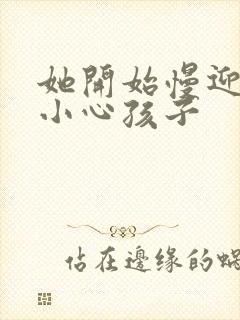 她開始慢迎
小心孩子
佔在邊缘的蜗